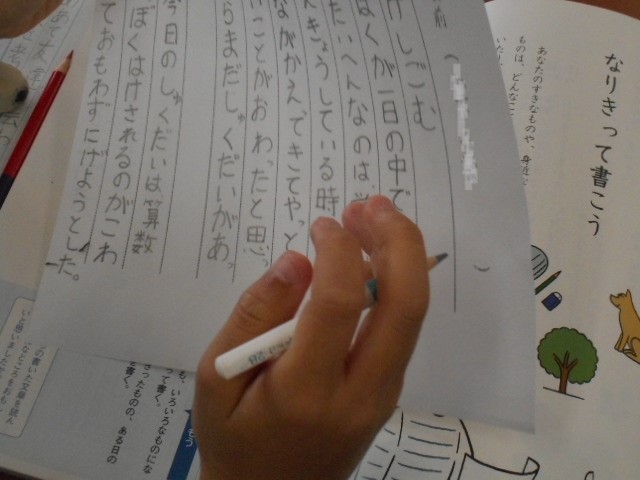 なりきって書こう
あなたのすきなものや、身近
ものは、どんなこ
前（ ）
けしごむ
ぼくが一日の中で
たいへんなのは、
んきょうしている時
ながかえってきてやっと
ことがおわったと思っ
らまだしゅくだいがあっ
今日のしゅくだいは算数
ぼくはけされるのがこわ
ておもわずにげようとした。
も、いろいろなものにな
って書く。
さったものの、ある日の
と書く。
の書いた文章を読ん
2B